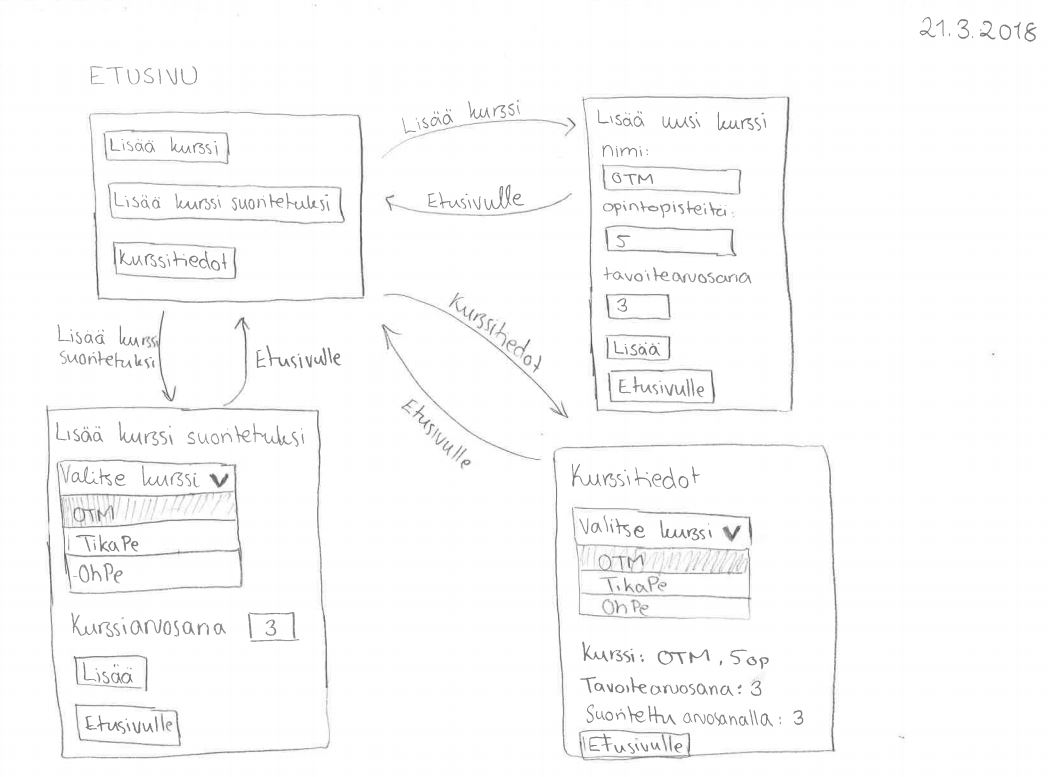 21.3.2018
ETUSIVU
Lisää kurssi
Lisää kurssi suoritetuksi
Kurssitiedot
Lisää kurssi
Etusivulle
Lisää uusi kurssi
nimi:
OTM
opintopisteitä:
5
tavoitearvosana
3
Lisää
Etusivulle
Lisää kurssi
suoritetuksi
Etusivulle
Kurssitiedot
Etusivulle
Lisää kurssi suoritetuksi
Valitse kurssi
OTM
TikaPe
OhPe
Kurssiarvosana 3
Lisää
Etusivulle
Kurssitiedot
Valitse kurssi
OTM
TikaPe
OhPe
Kurssi: OTM, 5 op
Tavoitearvosana: 3
Suoritettu arvosanalla: 3
Etusivulle